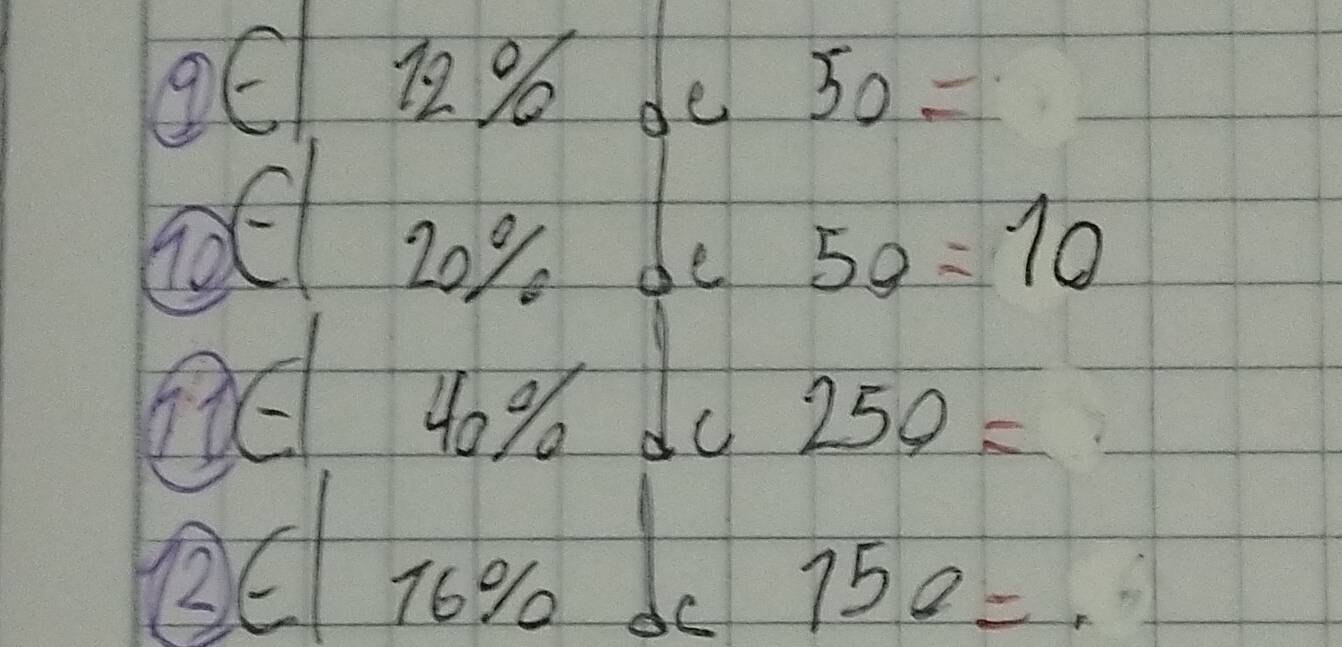 9 El 12% de 50 =
10 El 20% de 50 = 10
11 El 40% de 250 =
12 El 16% de 150 = .